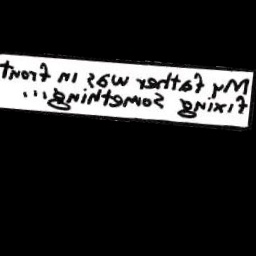 My father was in front
fixing something...